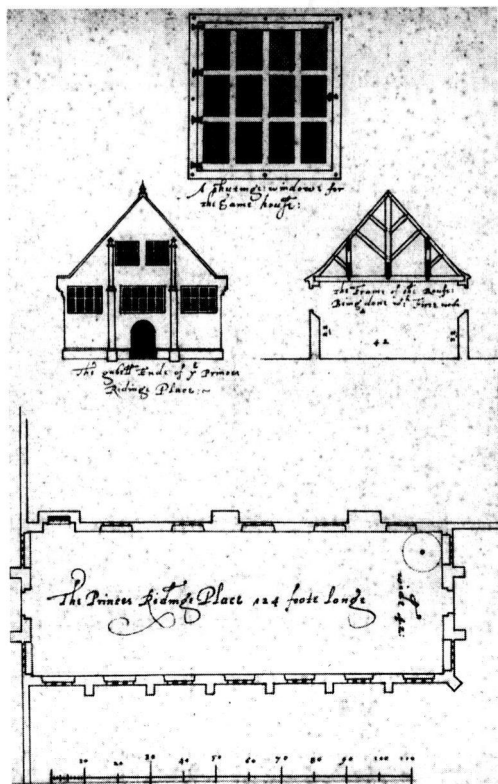 A shutinge windowe for
the Same house:
The gabell Ende of yᵉ Princes
Ridinge Place:~
The Frame of the Roufe:
Being done wᵗ Firre
42
The Princes Ridinge Place 124 foote longe
wide 42:
10 20 30 40 50 60 70 80 90 100 110